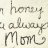 honey
always
Mom